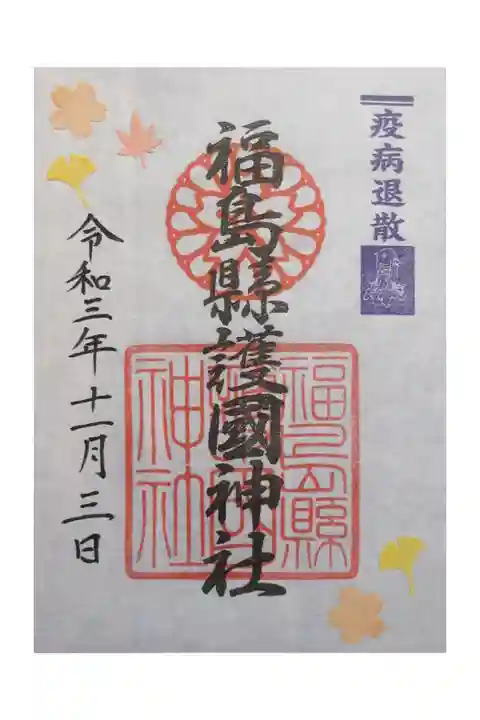 疫病退散
福島縣護國神社
福島縣護國神社
令和三年十一月三日